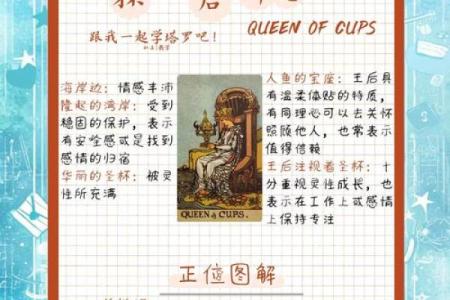 QUEEN OF CUPS
跟我一起学塔罗吧!
海岸边:情感丰沛
隆起的湾岸:受到
稳固的保护,表示
有安全感或是找到
感情的归宿
华丽的圣杯:被灵
性所充满
人鱼的宝座:王后具
有温柔体贴的特质,
有同理心可以去关怀
照顾他人,也常表示
值得信赖
王后注视着圣杯:十
分重视灵性成长,也
表示在工作上或感情
上保持专注
QUEEN of CUPS.
正位图解